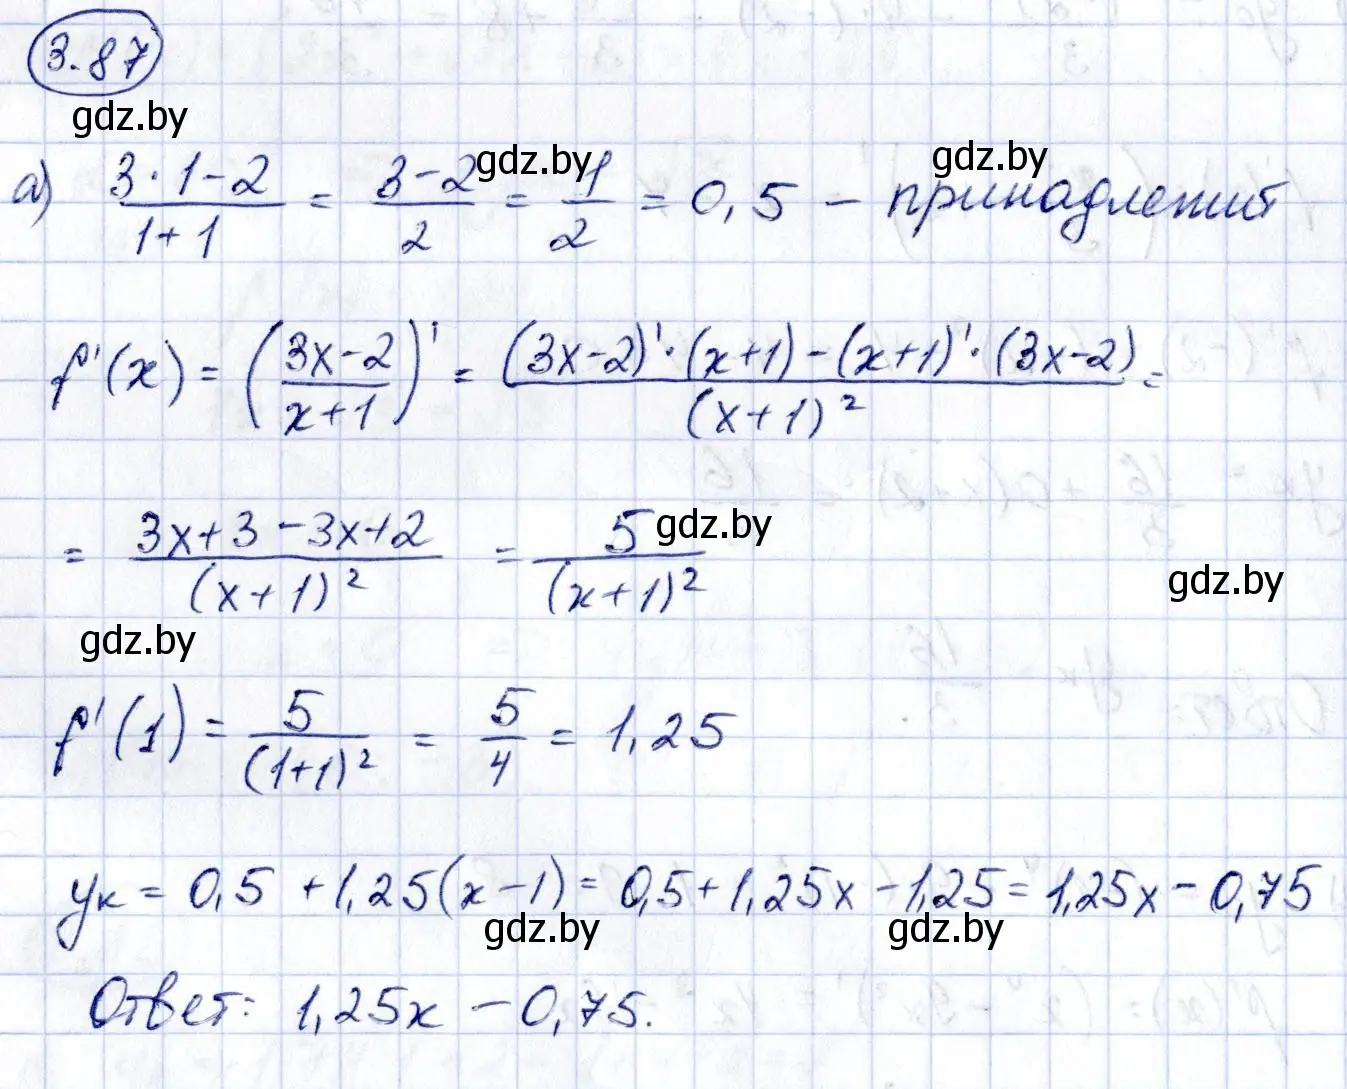 3.87
gdz.by
а) (3·1-2)/(1+1) = (3-2)/2 = 1/2 = 0,5 – принадлежит
gdz.by gdz.by
f'(x) = ((3x-2)/(x+1))' = ((3x-2)'·(x+1)-(x+1)'·(3x-2))/(x+1)² =
= (3x+3-3x+2)/(x+1)² = 5/(x+1)²
gdz.by
gdz.by
gdz.by
f'(1) = 5/(1+1)² = 5/4 = 1,25
yк = 0,5 +1,25(x-1) = 0,5+1,25x-1,25 = 1,25x-0,75
gdz.by gdz.by
Ответ: 1,25x – 0,75.